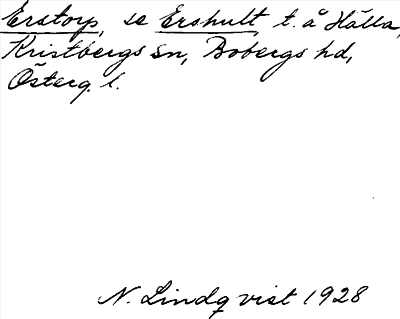 Erstorp, se Ershult, t. å Hälla,
Kristbergs sn, Bobergs hd,
Österg. l.
N. Lindqvist 1928